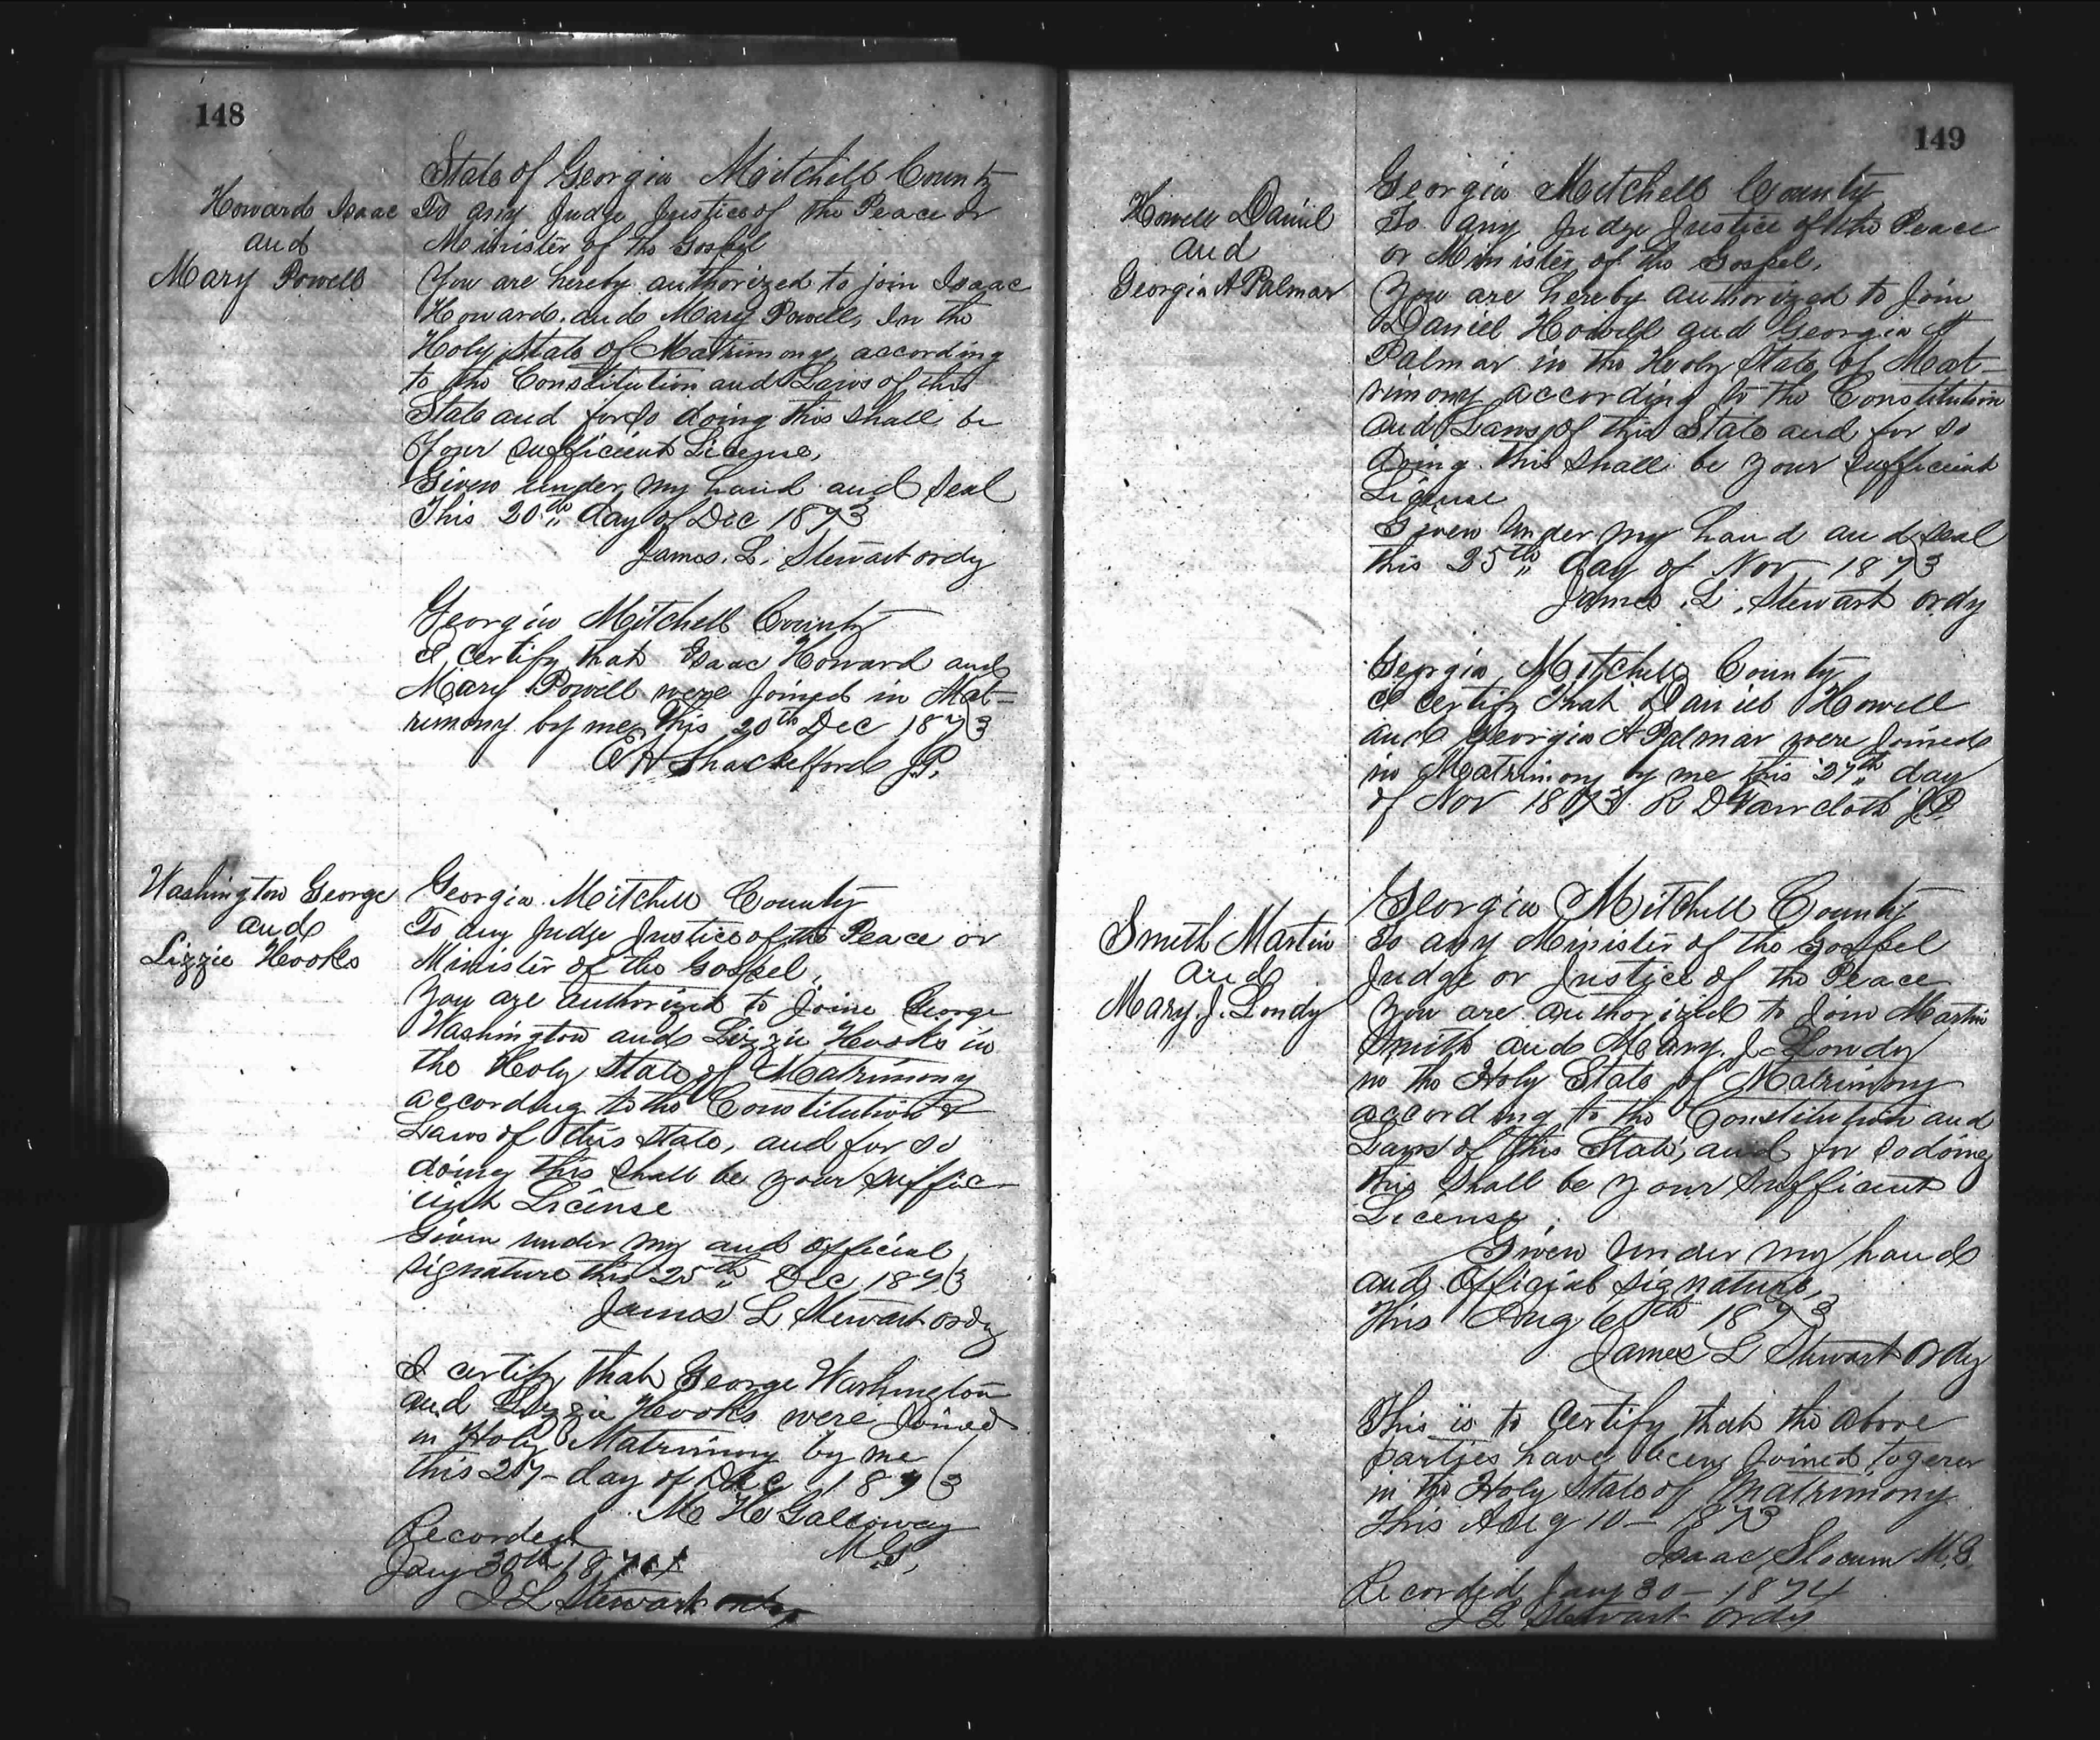 148
Howard Isaac
and
Mary Powell
State of Georgia Mitchell County
To any Judge Justice of the Peace or
Minister of the Gospel
You are hereby authorized to join Isaac
Howard and Mary Powell, in the
Holy State of Matrimony according
to the Constitution and Laws of this
State and for so doing this shall be
your sufficient License,
Given under my hand and seal
This 20th day of Dec 1873
James. L. Stewart ordy
Georgia Mitchell County
I certify that Isaac Howard and
Mary Powell were joined in Mat-
rimony by me this 20th Dec 1873
E H Shackelford J.P.
Washington George
and
Lizzie Hooks
Georgia Mitchell County
To any Judge Justice of the Peace or
Minister of the Gospel,
You are authorized to joine George
Washington and Lizzie Hooks in
the Holy State of Matrimony
according to the Constitution &
Laws of this State, and for so
doing this shall be your suffic-
ient License
Given under my and official
signature this 25th Dec 1873
James L Stewart ordy
I certify that George Washington
and Lizzie Hooks were joined
in Holy Matrimony by me
this 27- day of Dec 1873
M H Galloway
M G,
Recorded
Jany 30th 1874
J L Stewart
149
Howell Daniel
and
Georgia A Palmar
Georgia Mitchell County
To any Judge Justice of the Peace
or Minister of the Gospel,
You are hereby authorized to join
Daniel Howell and Georgia A
Palmar in the Holy State of Mat-
rimony according to the Constitution
and Laws of this State and for so
doing this shall be your sufficient
License
Given under my hand and seal
this 25th day of Nov 1873
James. L. Stewart ordy
Georgia Mitchell County
I certify that Daniel Howell
and Georgia A Palmar were joined
in Matrimony by me this 27th day
of Nov 1873 R D Faircloth J.P.
Smith Martin
and
Mary. J. Londy
Georgia Mitchell County
To any Minister of the Gospel
Judge or Justice of the Peace
You are authorized to join Martin
Smith and Mary. J. Londy
in the Holy State of Matrimony
according to the Constitution and
Laws of this State, and for so doing
this shall be your sufficient
License.
Given under my hand
and official signature,
This Aug 6th 1873
James L Stewart ordy
This is to certify that the above
parties have been joined togerer
in the Holy State of Matrimony
This Aug 10- 1873
Isaac Slocum M.G.
Recorded Jany 30- 1874
J L Stewart ordy